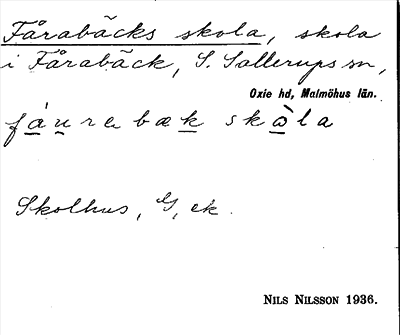 Fårabäcks skola, skola
i Fårabäck, S. Sallerups sn,
Oxie hd, Malmöhus län.
fáurebæk skòla
Skolhus, G, ek.
NILS NILSSON 1936.